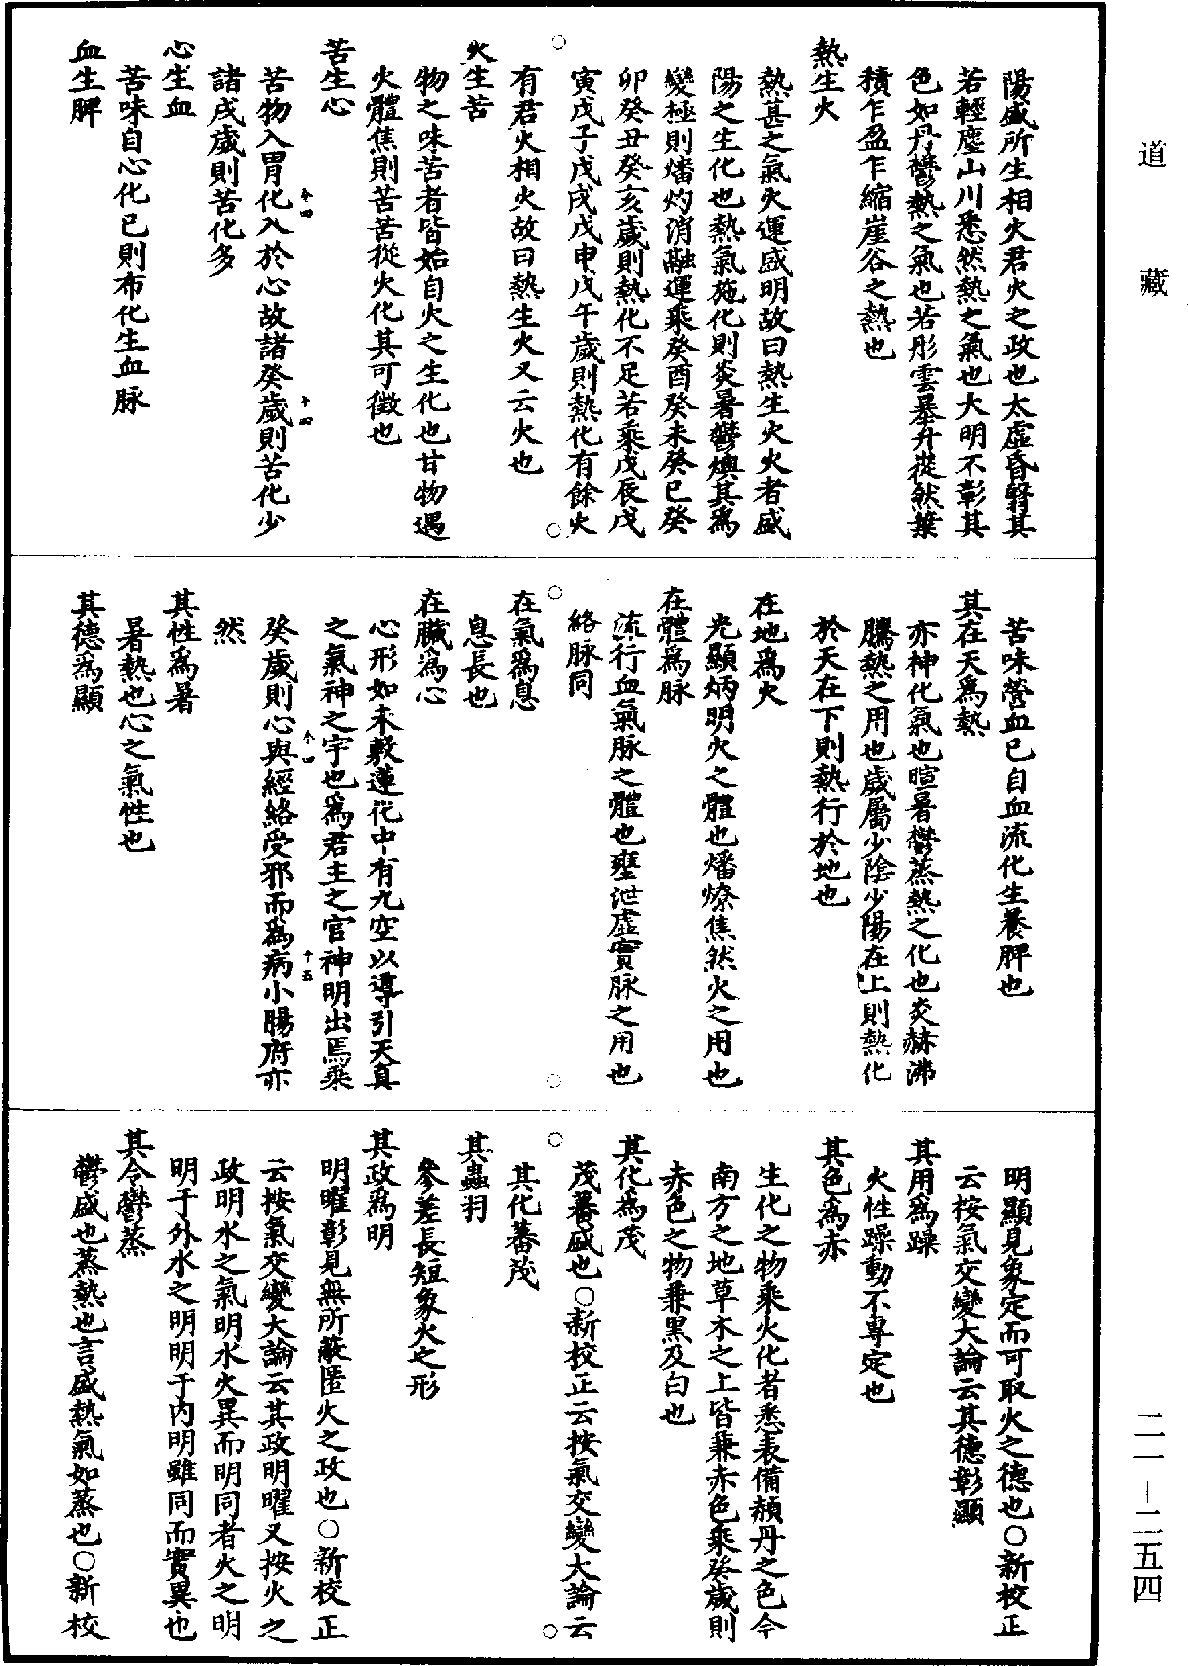 陽盛所生相火君火之政也太虛昏翳其
若輕塵山川悉然熱之氣也大明不彰其
色如丹鬱熱之氣也若彤雲暴升㒇然葉
積乍盈乍縮崖谷之熱也
熱生火
熱甚之氣火運盛明故曰熱生火火者盛
陽之生化也熱氣施化則炎暑鬱燠其爲
變極則燔灼消融運乘癸酉癸未癸巳癸
卯癸丑癸亥歲則熱化不足若乘戊辰戊
寅戊子戊戌戊申戊午歲則熱化有餘火
有君火相火故曰熱生火又云火也
火生苦
物之味苦者皆始自火之生化也甘物遇
火體焦則苦苦從火化其可徵也
苦生心
苦物入胃化入於心故諸癸歲則苦化少
諸戊歲則苦化多
心生血
苦味自心化已則布化生血脉
血生脾
苦味營血已自血流化生養脾也
其在天爲熱
亦神化氣也暄暑鬱蒸熱之化也炎赫沸
騰熱之用也歲屬少陰少陽在上則熱化
於天在下則熱行於地也
在地爲火
光顯炳明火之體也燔燎焦然火之用也
在體爲脉
流行血氣脉之體也壅泄虛實脉之用也
絡脉同
在氣爲息
息長也
在臟爲心
心形如未敷蓮花中有九空以導引天真
之氣神之宇也爲君主之官神明出焉乘
癸歲則心與經絡受邪而爲病小腸府亦
然
其性爲暑
暑熱也心之氣性也
其德爲顯
明顯見象定而可取火之德也○新校正
云按氣交變大論云其德彰顯
其用爲躁
火性躁動不專定也
其色爲赤
生化之物乘火化者悉表備赬丹之色今
南方之地草木之上皆兼赤色乘癸歲則
赤色之物兼黑及白也
其化爲茂
茂蕃盛也○新校正云按氣交變大論云
其化蕃茂
其蟲羽
參差長短象火之形
其政爲明
明曜彰見無所蔽匿火之政也○新校正
云按氣交變大論云其政明曜又按火之
政明水之氣明水火異而明同者火之明
明于外水之明明于內明雖同而實異也
其令鬱蒸
鬱盛也蒸熱也言盛熱氣如蒸也○新校
道藏
二一－二五四